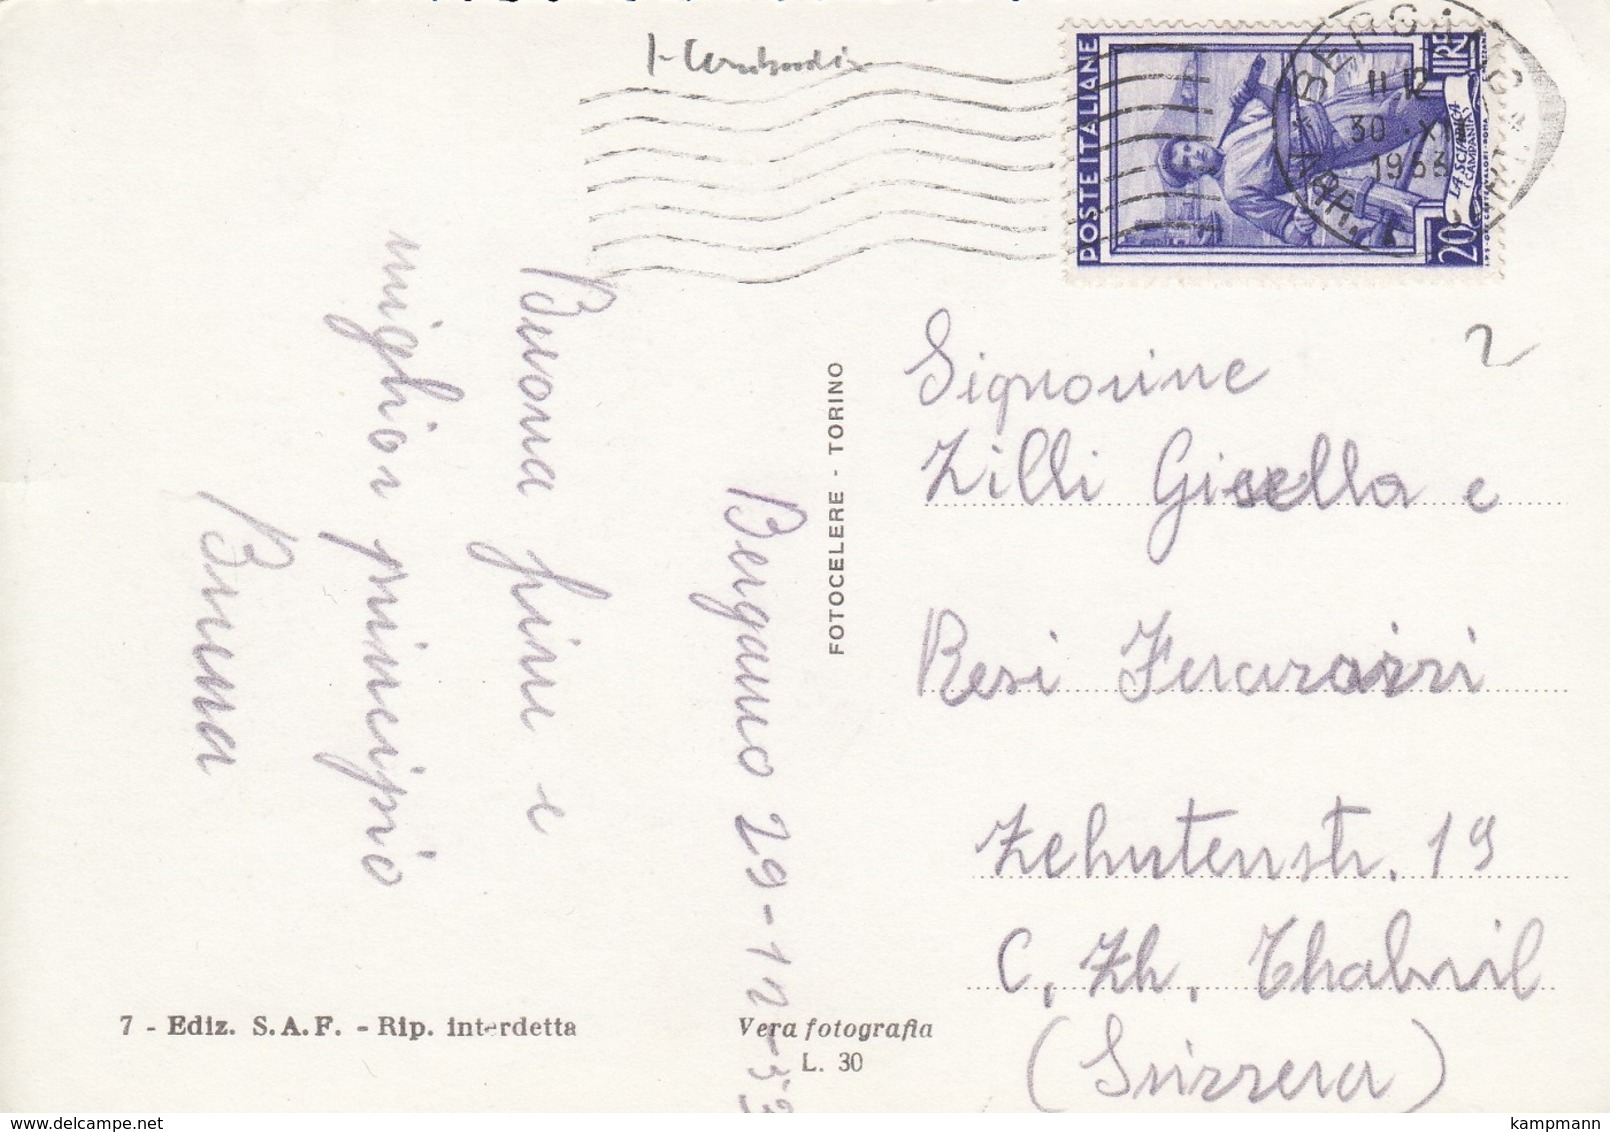 POSTE ITALIANE
LIRE
20
LA SCIABICA
(CAMPANIA)
11 12
30 XII
1953
2
Buona fine e
miglior principio
Bruna
Bergamo 29-12-53
FOTOCELERE - TORINO
Signorine
Zilli Gisella e
Resi
Zehntenstr. 19
C. Zh. Thalwil
(Svizzera)
7 - Ediz. S.A.F. - Rip. interdetta
Vera fotografia
L. 30
kampmann